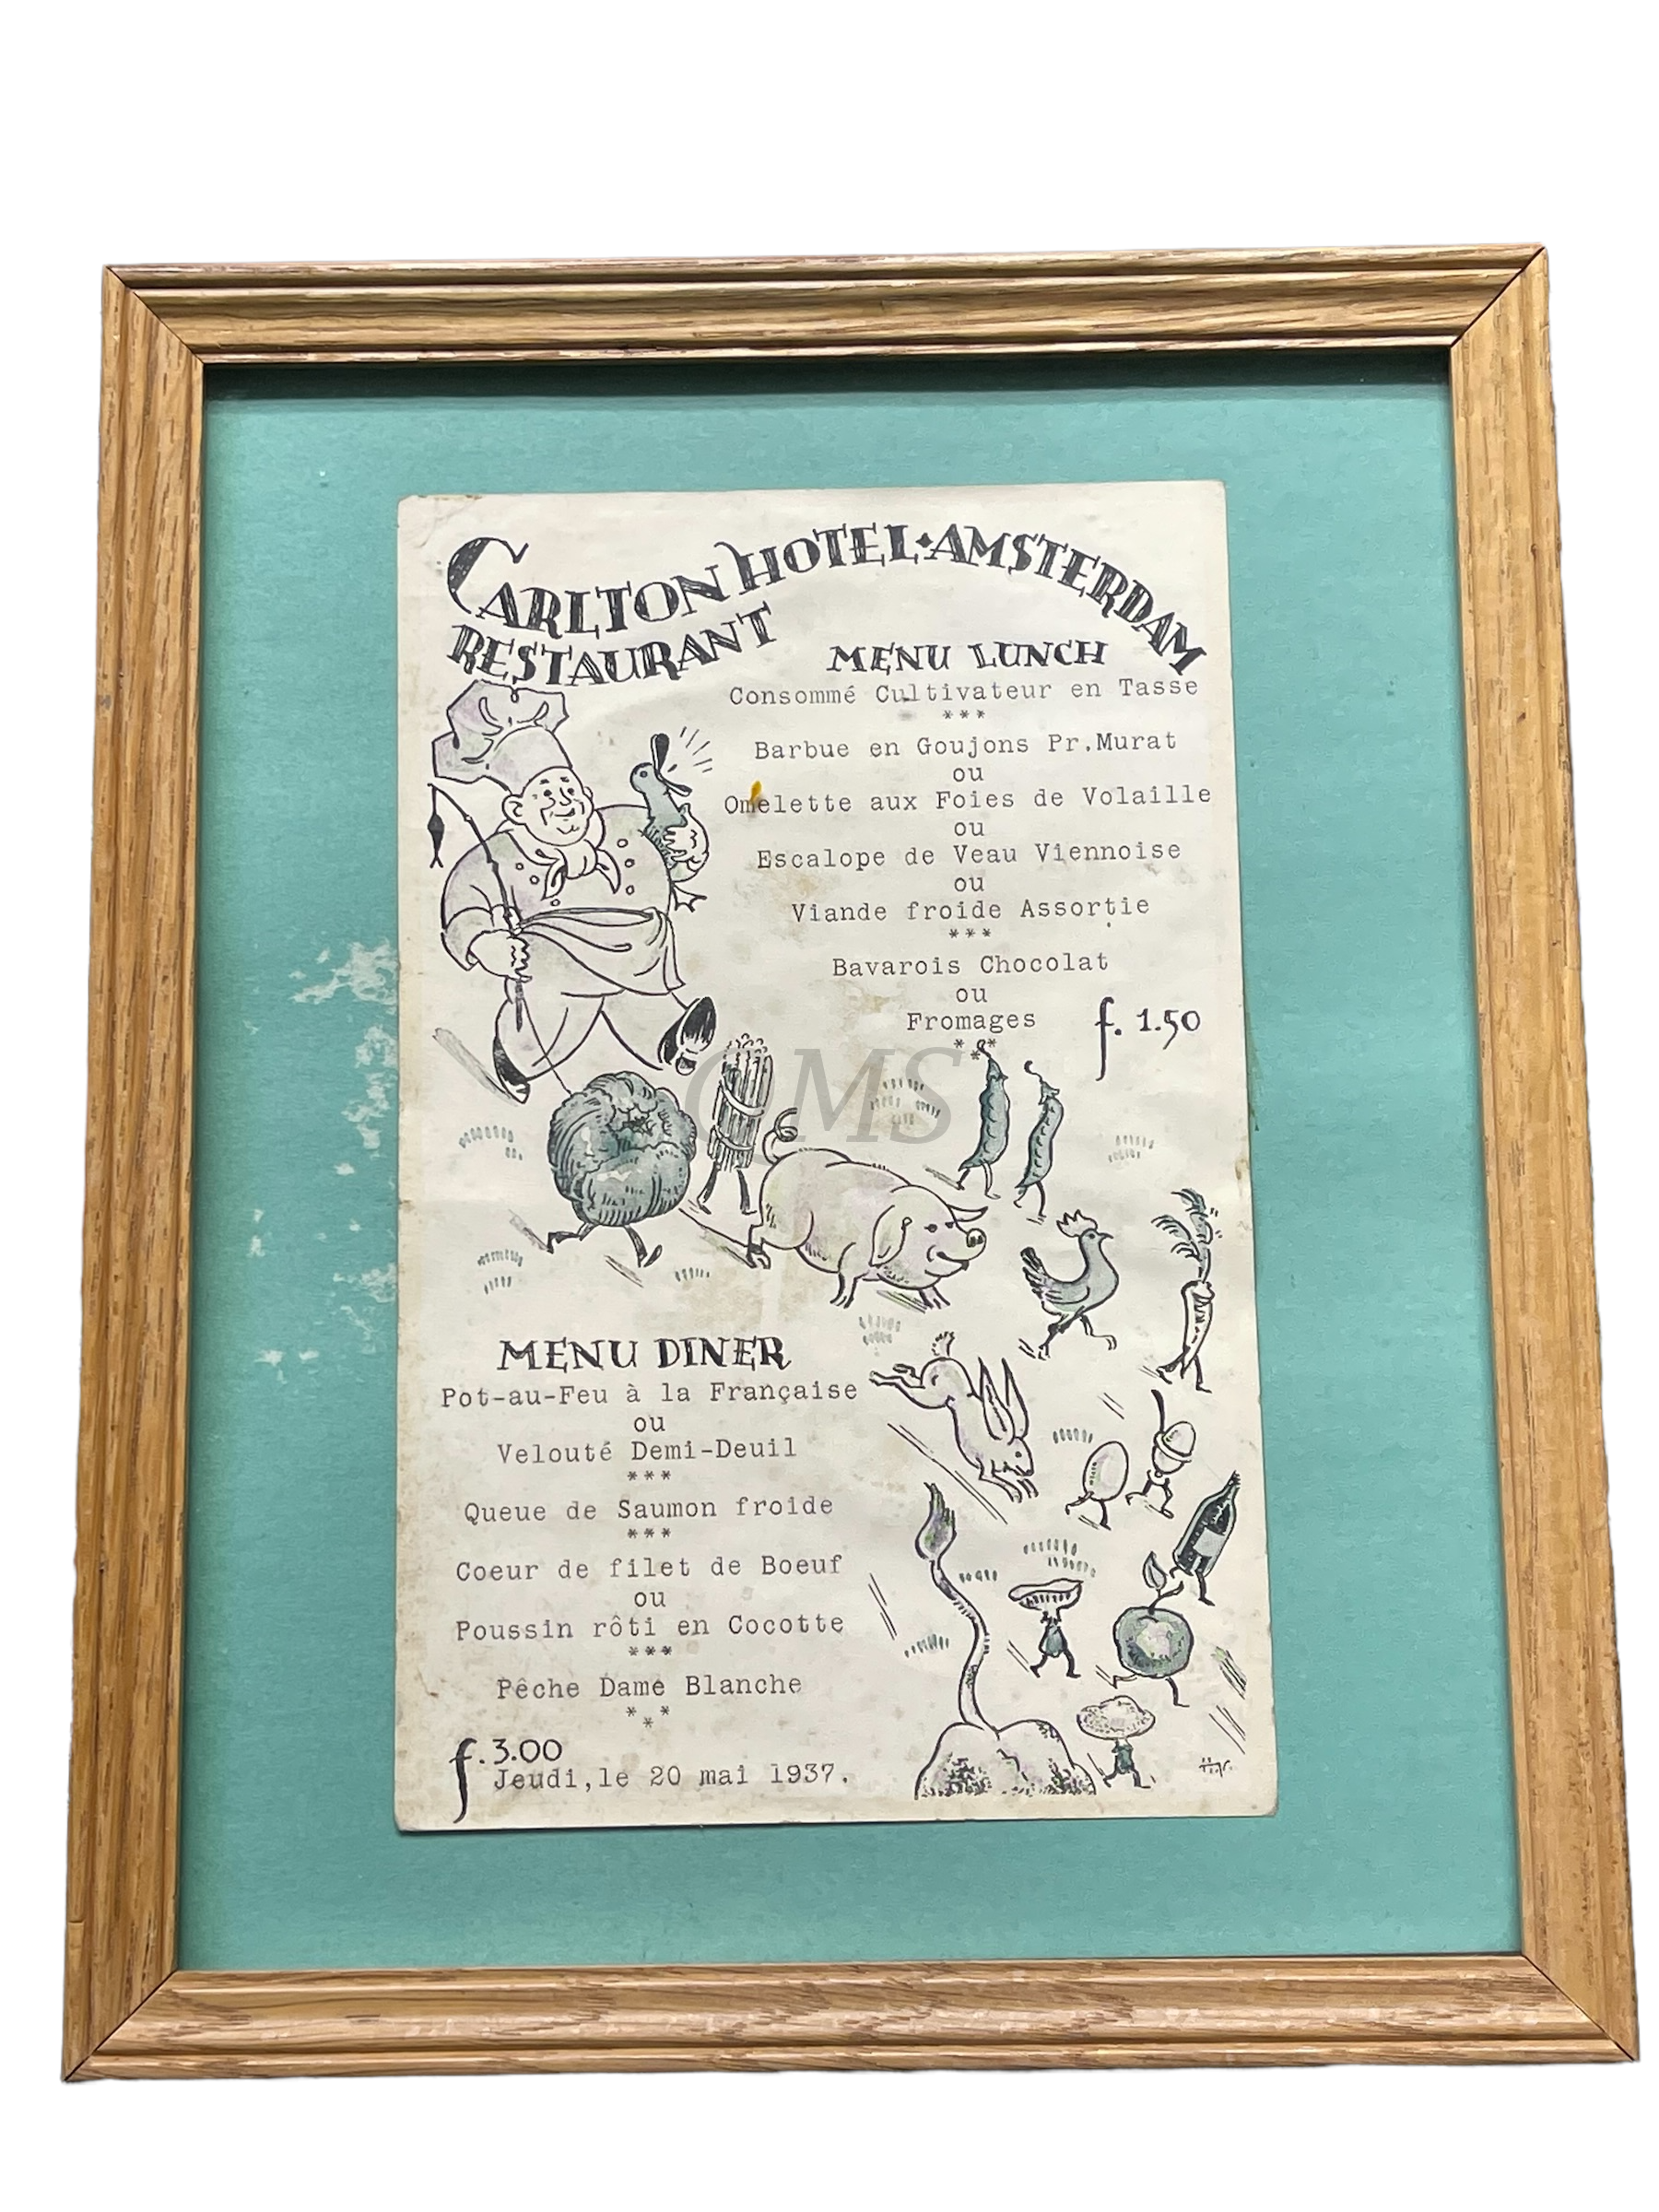 CARLTON HOTEL · AMSTERDAM
RESTAURANT
MENU LUNCH
Consommé Cultivateur en Tasse
***
Barbue en Goujons Pr.Murat
ou
Omelette aux Foies de Volaille
ou
Escalope de Veau Viennoise
ou
Viande froide Assortie
***
Bavarois Chocolat
ou
Fromages
f. 1.50
***
QMS
MENU DINER
Pot-au-Feu à la Française
ou
Velouté Demi-Deuil
***
Queue de Saumon froide
***
Coeur de filet de Boeuf
ou
Poussin rôti en Cocotte
***
Pêche Dame Blanche
***
f. 3.00
Jeudi,le 20 mai 1937.